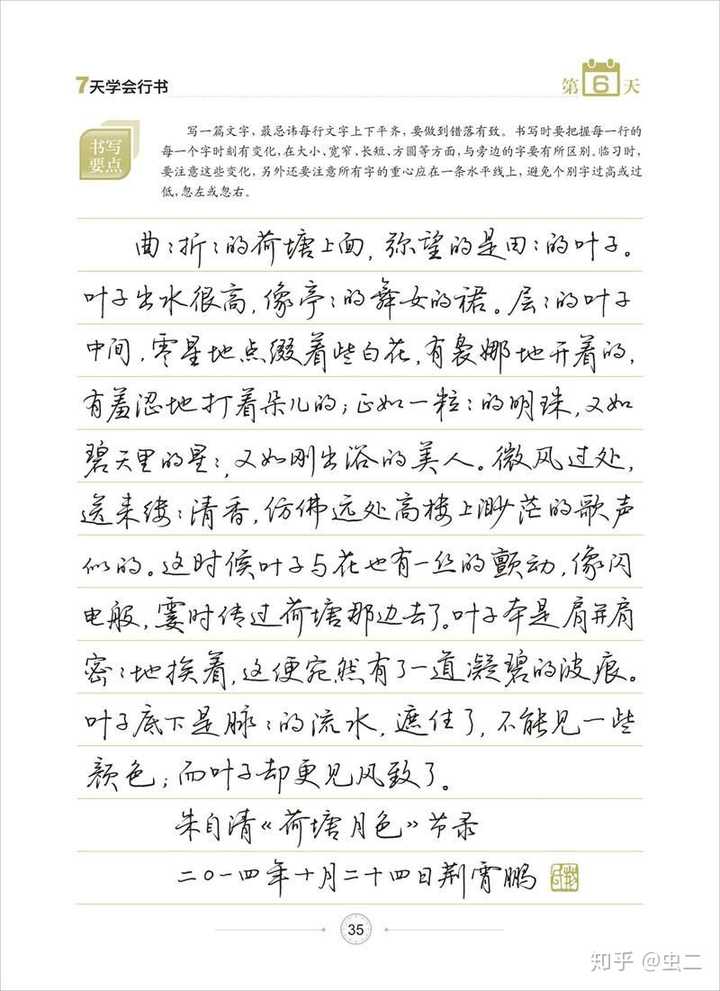 7天学会行书
第6天
书写
要点
写一篇文字，最忌讳每行文字上下平齐，要做到错落有致。书写时要把握每一行的
每一个字时刻有变化，在大小、宽窄、长短、方圆等方面，与旁边的字要有所区别。临习时，
要注意这些变化，另外还要注意所有字的重心应在一条水平线上，避免个别字过高或过
低，忽左或忽右。
曲：折：的荷塘上面，弥望的是田：的叶子。
叶子出水很高，像亭：的舞女的裙。层：的叶子
中间，零星地点缀着些白花，有袅娜地开着的，
有羞涩地打着朵儿的；正如一粒：的明珠，又如
碧天里的星：，又如刚出浴的美人。微风过处，
送来缕：清香，仿佛远处高楼上渺茫的歌声
似的。这时候叶子与花也有一丝的颤动，像闪
电般，霎时传过荷塘那边去了。叶子本是肩并肩
密：地挨着，这便宛然有了一道凝碧的波痕。
叶子底下是脉：的流水，遮住了，不能见一些
颜色；而叶子却更见风致了。
朱自清《荷塘月色》节录
二〇一四年十月二十四日荆霄鹏
35
知乎 @虫二